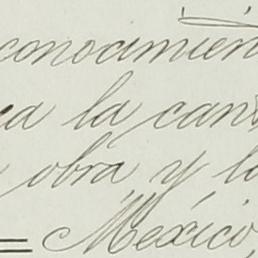 conocimien
a la can
obra y la
México,